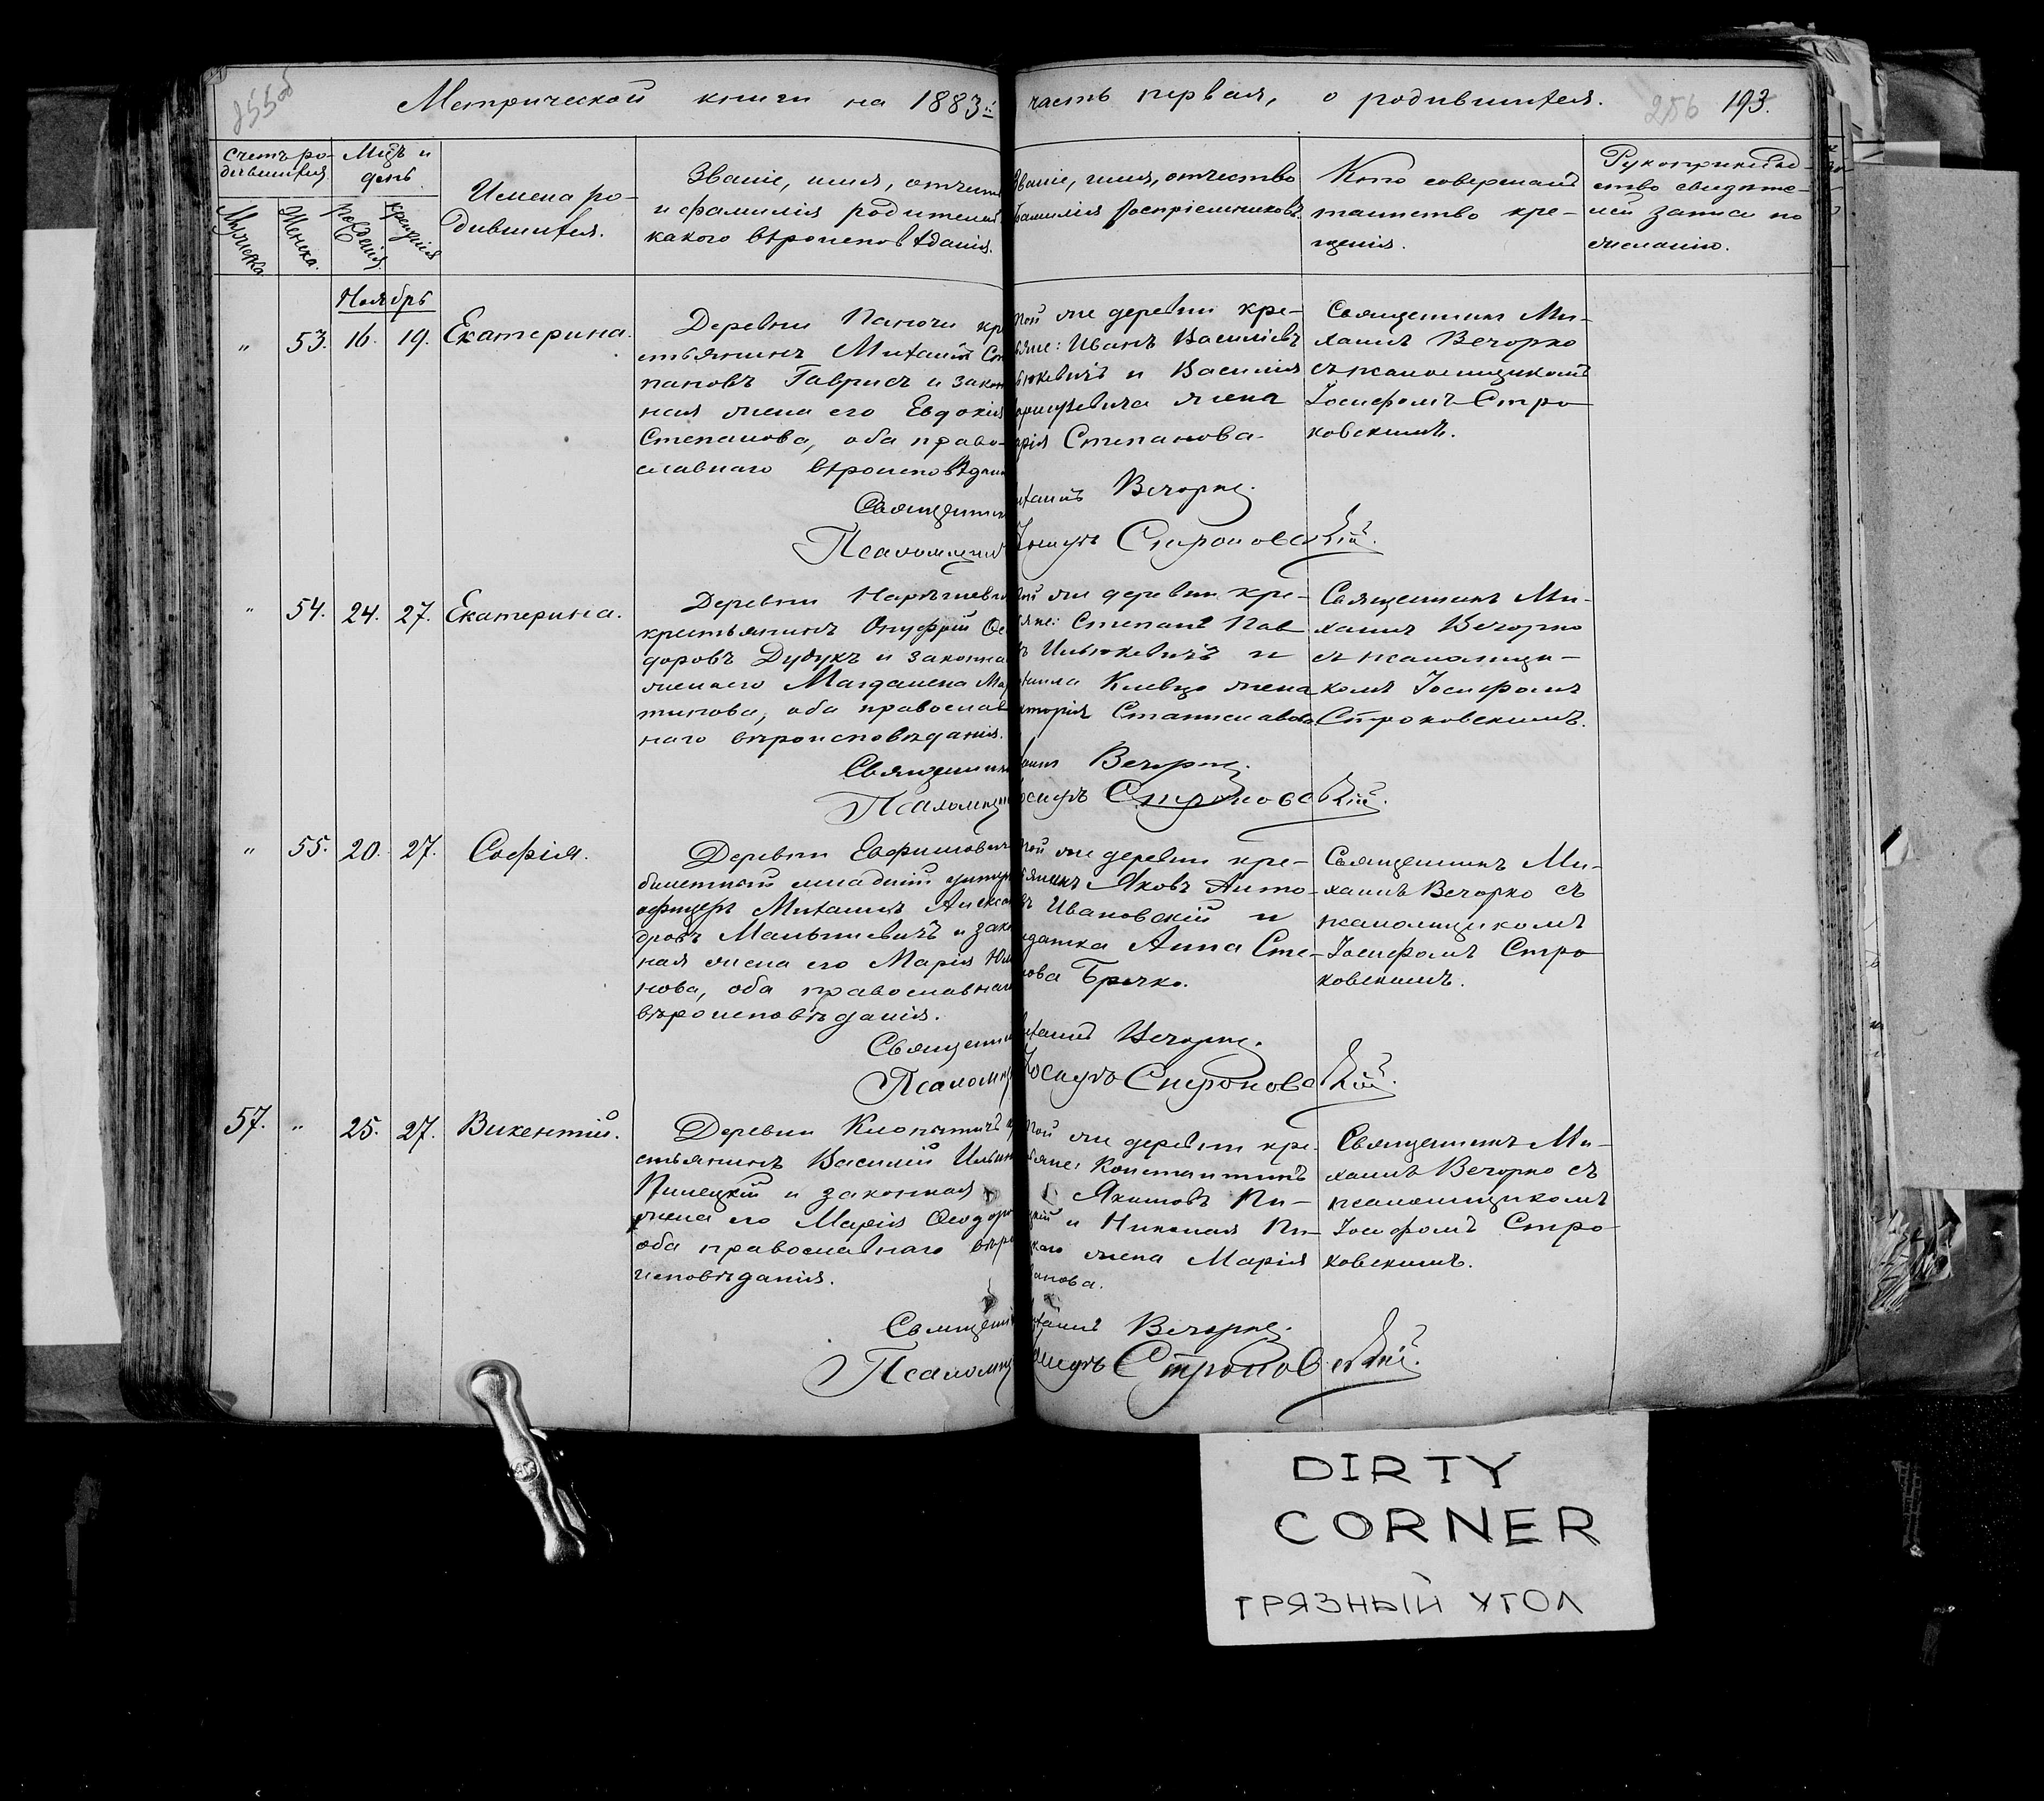 255об
Метрической книги на 1883й часть первая, о родившихся. 256 193.
Счетъ ро-
дившихся
Мужеска.
Женска.
Мцъ и
день
рожденія
крещенія
Имена ро-
дившихся.
Званіе, имя, отчест
и фамилія родителей
какого вѣроисповѣданія.
Званіе, имя, отчество
фамилія воспріемниковъ
Кто совершалъ
таинство кре-
щенія.
Рукоприклад-
ство свидѣте-
лей записи по
желанію.
Ноябрь
" 53. 16. 19. Екатерина.
Деревни кре
стьянинъ Михаилъ Сте
пановъ Гаврись и закон
ная жена его Евдокія
Степанова, оба право-
славнаго вѣроисповѣдан
той же деревни кре-
стьяне: Иванъ Васильевъ
и Василія
жена
арія Степанова
Священникъ Ми-
хаилъ Вечорко
съ псаломщикомъ
Іосифомъ Стро
ковскимъ.
Священник Михаилъ Вечорко.
Псаломщик Іосифъ Строковскій.
" 54. 24. 27. Екатерина.
Деревни
крестьянинъ Онуфрій Ѳе
доровъ Дудукъ и законна
жена его Магдалена Ма
тинова, оба православ
наго вѣроисповѣданія.
той же деревни кре-
стьяне: Степанъ Пав
въ Ильюкевичъ и
хаила Клевцо жена
кторія Станиславова
Священникъ Ми-
хаилъ Вечорко
съ псаломщи-
комъ Іосифомъ
Строковскимъ.
Священник Михаилъ Вечорко.
Псаломщик Іосифъ Строковскій.
" 55. 20. 27. Софія.
Деревни Евфимович
билетный младшій унтер
офицеръ Михаилъ Алексан
дровъ Мальцевичъ и зако
ная жена его Марія
нова, оба православнаг
вѣроисповѣданія.
той же деревни кре-
стьянинъ Яковъ Анто-
въ Ивановскій и
лдатка Анна Сте-
нова Брочко.
Священникъ Ми-
хаилъ Вечорко съ
псаломщикомъ
Іосифомъ Стро
ковскимъ.
Священник Михаилъ Вечорко.
Псаломщик Іосифъ Строковскій.
57. " 25. 27. Викентій.
Деревни Клопытичъ кр
стьянинъ Василій Ильинъ
Пилецкій и законная
жена его Марія Ѳедоро
оба православнаго вѣро
исповѣданія.
той же деревни кре-
стьяне: Константинъ
Якимовъ Пи-
цкій и Николая Пи-
цкаго жена Марія
анова.
Священникъ Ми-
хаилъ Вечорко съ
псаломщикомъ
Іосифомъ Стро
ковскимъ.
Священник Михаилъ Вечорко.
Псаломщик Іосифъ Строковскій.
DIRTY
CORNER
ГРЯЗНЫЙ УГОЛ